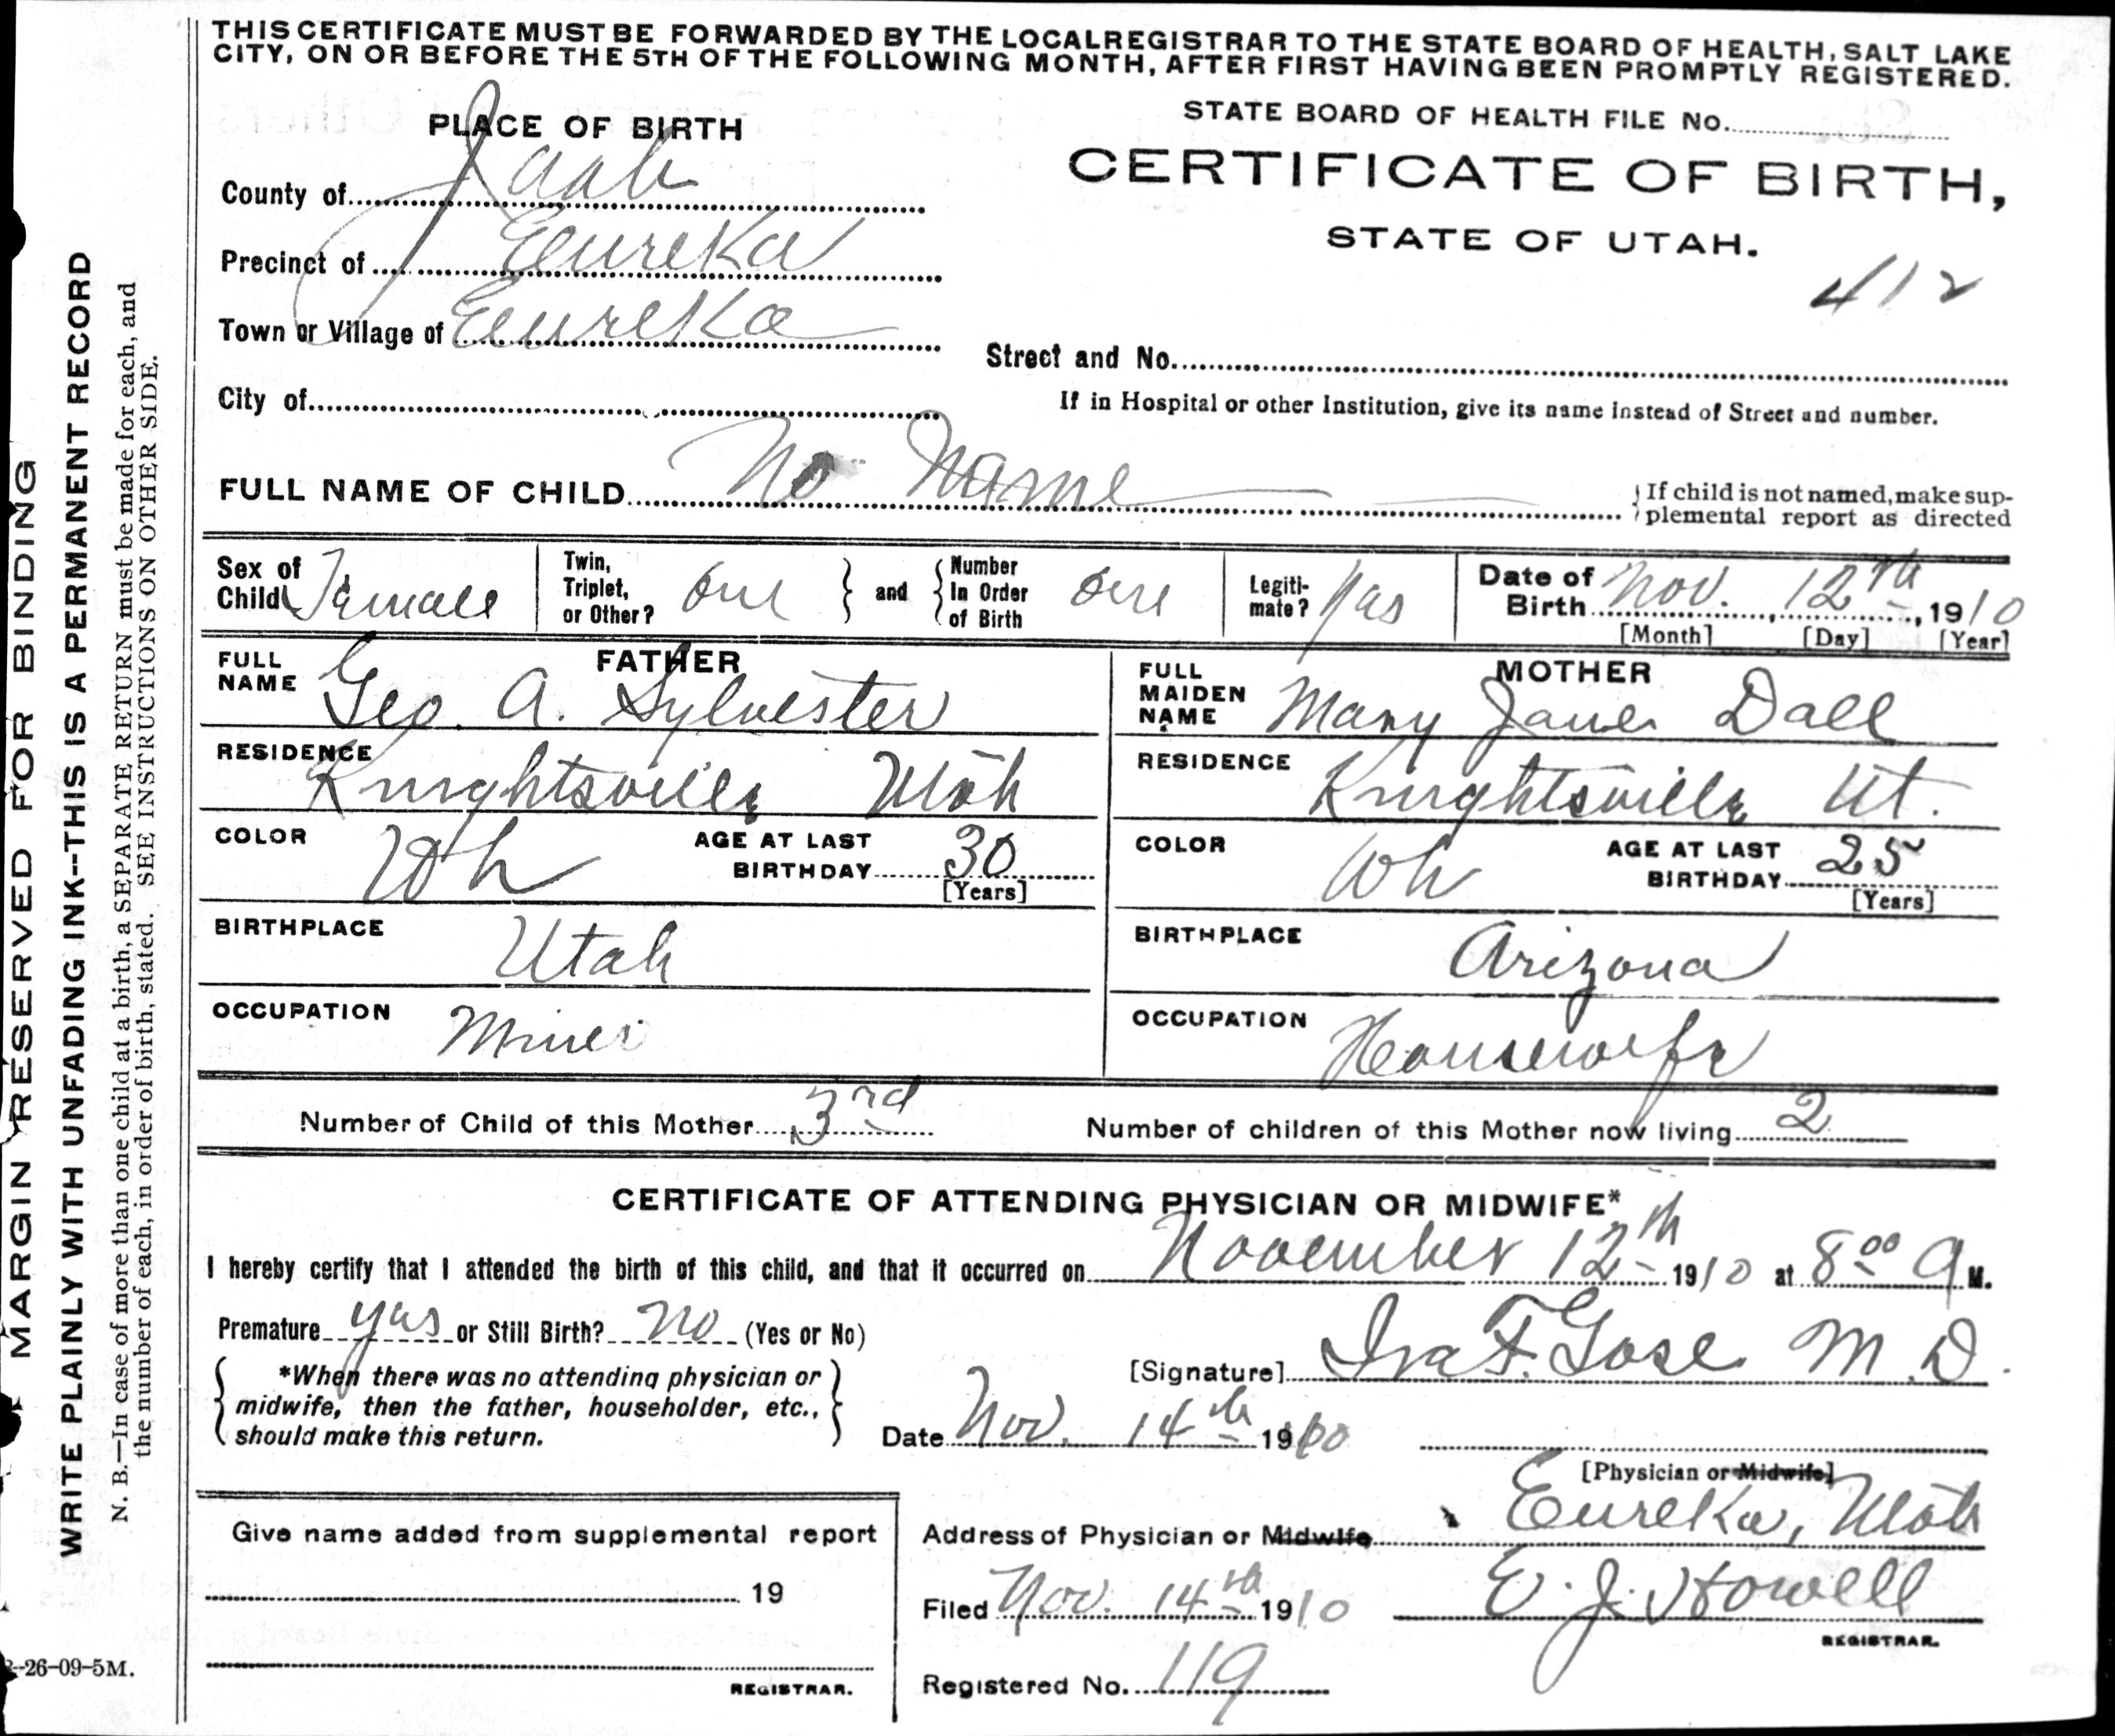 THIS CERTIFICATE MUST BE FORWARDED BY THE LOCAL REGISTRAR TO THE STATE BOARD OF HEALTH, SALT LAKE
CITY, ON OR BEFORE THE 5TH OF THE FOLLOWING MONTH, AFTER FIRST HAVING BEEN PROMPTLY REGISTERED.
PLACE OF BIRTH
STATE BOARD OF HEALTH FILE No.
County of Juab
CERTIFICATE OF BIRTH,
STATE OF UTAH.
Precinct of Eureka
412
Town or Village of Eureka
Street and No.
City of
If in Hospital or other Institution, give its name instead of Street and number.
FULL NAME OF CHILD No Name
If child is not named, make sup-
plemental report as directed
Sex of Child Female
Twin, Triplet, or Other? One and Number In Order of Birth One
Legiti-mate? Yas
Date of Birth Nov. 12th, 1910
[Month] [Day] [Year]
FATHER
FULL NAME Geo. A. Sylvester
RESIDENCE Knightsville Utah
COLOR Wh AGE AT LAST BIRTHDAY 30
[Years]
BIRTHPLACE Utah
OCCUPATION Miner
MOTHER
FULL MAIDEN NAME Mary Jane Dall
RESIDENCE Knightsville Ut.
COLOR Wh AGE AT LAST BIRTHDAY 25
[Years]
BIRTHPLACE Arizona
OCCUPATION Housewife
Number of Child of this Mother 3rd Number of children of this Mother now living 2
CERTIFICATE OF ATTENDING PHYSICIAN OR MIDWIFE*
I hereby certify that I attended the birth of this child, and that it occurred on November 12th 1910 at 8 00 A M.
Premature yas or Still Birth? No (Yes or No)
[Signature] Ira F. Gose M.D.
*When there was no attending physician or
midwife, then the father, householder, etc.,
should make this return.
Date Nov. 14th 1910
[Physician or Midwife]
Address of Physician or Midwife Eureka, Utah
Filed Nov. 14th 1910 E. J. Howell
REGISTRAR.
Registered No. 119
Give name added from supplemental report
19
REGISTRAR.
MARGIN RESERVED FOR BINDING
WRITE PLAINLY WITH UNFADING INK--THIS IS A PERMANENT RECORD
N. B.—In case of more than one child at a birth, a SEPARATE RETURN must be made for each, and
the number of each, in order of birth, stated. SEE INSTRUCTIONS ON OTHER SIDE.
-26-09-5M.